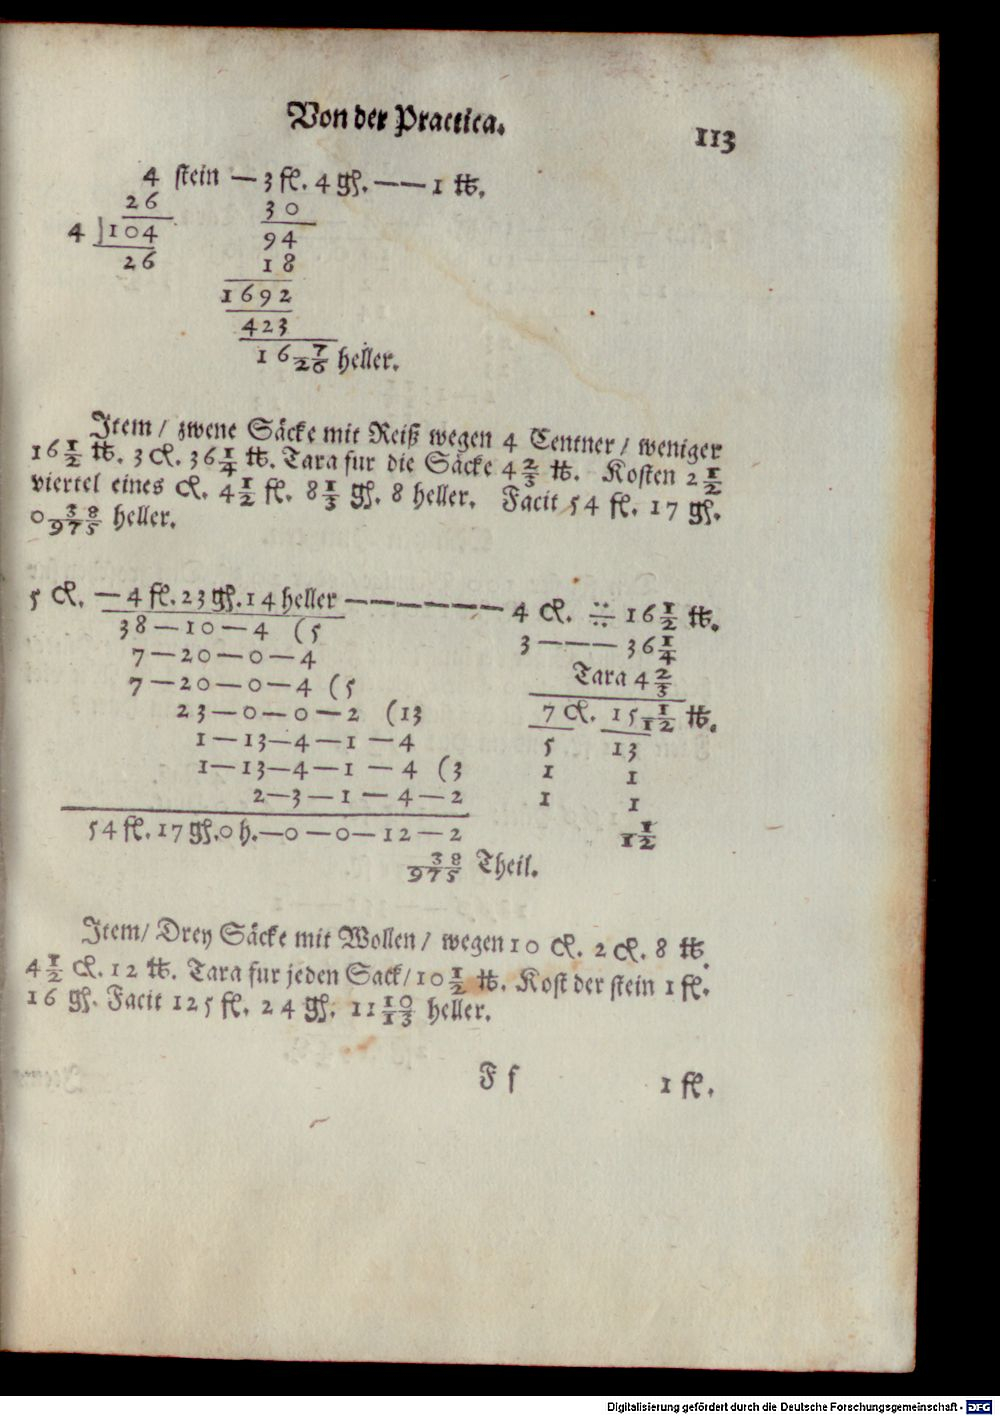 Von der Practica.
113
4 stein — 3 fl. 4 gß. — — 1 ℔.
26 30
4 |104 94
26 18
1692
423
16 7/26 heller.
Item / zwene Säcke mit Reiß wegen 4 Centner / weniger
16 1/2 ℔. 3 Ct. 36 1/4 ℔. Tara fur die Säcke 4 2/3 ℔. Kosten 2 1/2
viertel eines Ct. 4 1/2 fl. 8 1/3 gß. 8 heller. Facit 54 fl. 17 gß.
0 38/975 heller.
5 Ct. — 4 fl. 23 gß. 14 heller — — — — — — 4 Ct. ÷ 16 1/2 ℔.
38 — 10 — 4 (5 3 — — — 36 1/4
7 — 20 — 0 — 4 Tara 4 2/3
7 — 20 — 0 — 4 (5
23 — 0 — 0 — 2 (13 7 Ct. 15 1/12 ℔.
1 — 13 — 4 — 1 — 4 5 13
1 — 13 — 4 — 1 — 4 (3 1 1
2 — 3 — 1 — 4 — 2 1 1
54 fl. 17 gß. 0 h. — 0 — 0 — 12 — 2 1/12
38/975 Theil.
Item / Drey Säcke mit Wollen / wegen 10 Ct. 2 Ct. 8 ℔.
4 1/2 Ct. 12 ℔. Tara fur jeden Sack / 10 1/2 ℔. Kost der stein 1 fl.
16 gß. Facit 125 fl. 24 gß. 11 10/13 heller.
F f 1 fl.
Digitalisierung gefördert durch die Deutsche Forschungsgemeinschaft - DFG